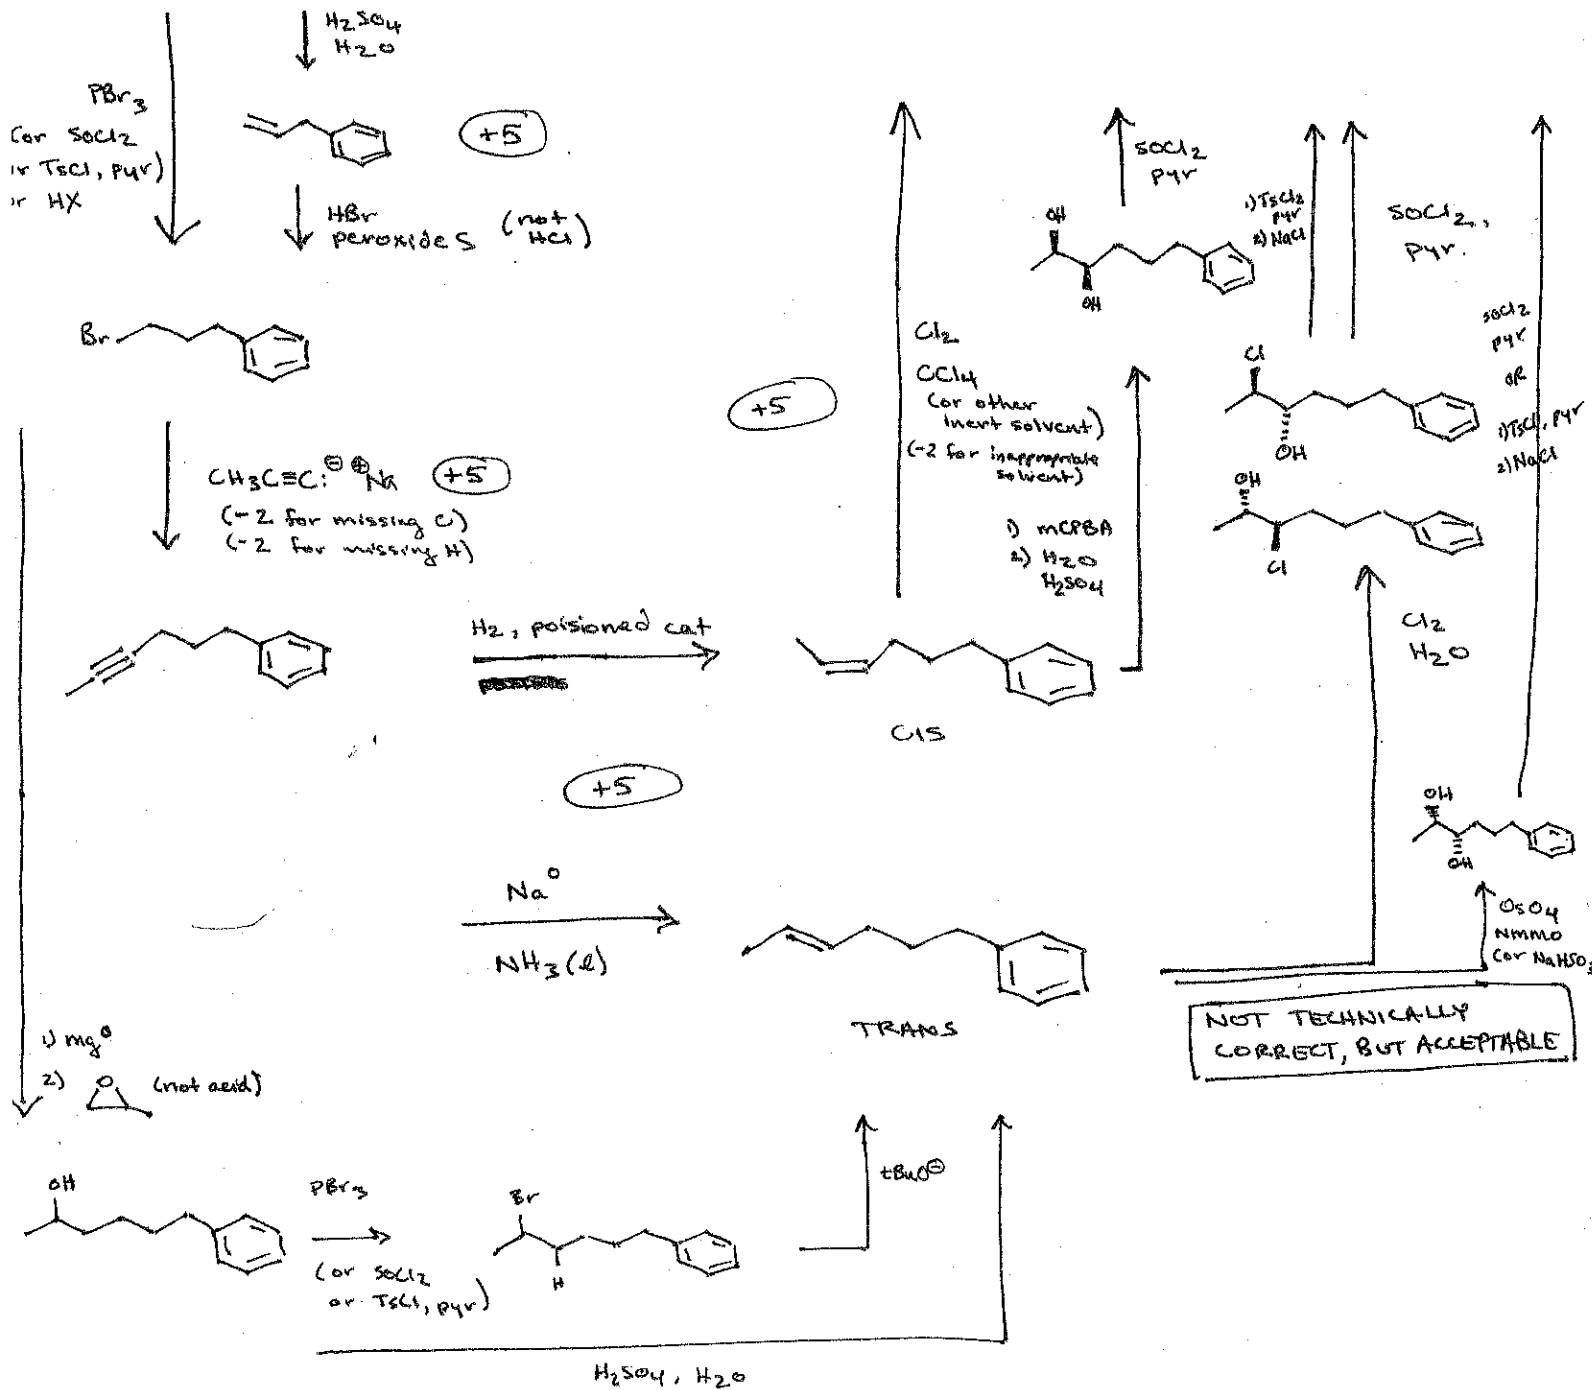 H2SO4
H2O
PBr3
(or SOCl2
or TsCl, pyr)
or HX
+5
HBr
peroxides
(not
HCl)
Br
CH3C≡C:⊖ ⊕Na
+5
(-2 for missing C)
(-2 for missing H)
H2, poisioned cat
CIS
+5
Na⁰
NH3(l)
TRANS
1) Mg⁰
2)
O
(not acid)
OH
PBr3
(or SOCl2
or TsCl, pyr)
Br
H
tBuO⊖
H2SO4, H2O
+5
Cl2
CCl4
(or other
inert solvent)
(-2 for inappropriate
solvent)
SOCl2
pyr
OH
OH
1) mCPBA
2) H2O
H2SO4
1) TsCl2
pyr
2) NaCl
SOCl2,
pyr.
Cl
OH
OH
Cl
Cl2
H2O
SOCl2
pyr
OR
1) TsCl, pyr
2) NaCl
OH
OH
OsO4
NMMO
(or NaHSO3
NOT TECHNICALLY
CORRECT, BUT ACCEPTABLE